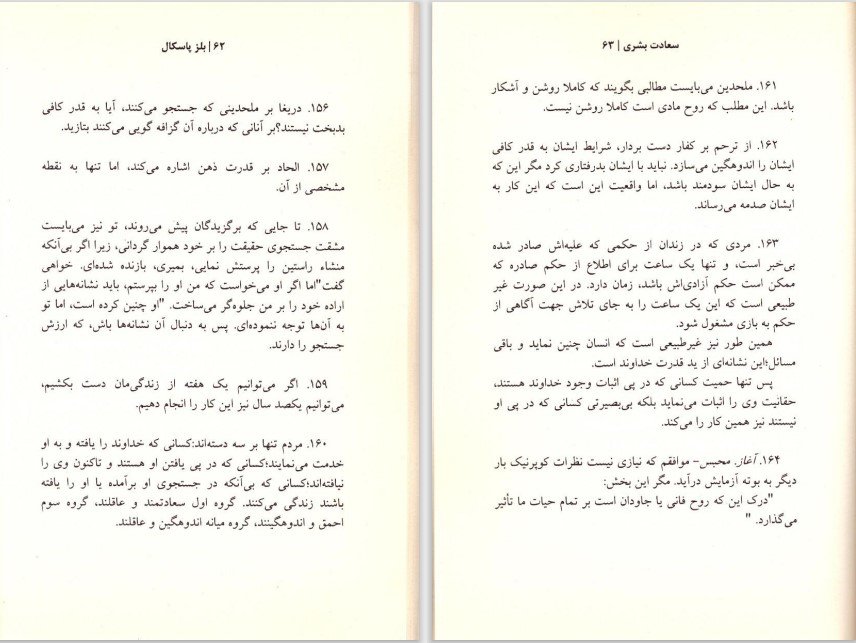 ۶۲ | بلز پاسکال
۱۵۶. دریغا بر ملحدینی که جستجو می‌کنند، آیا به قدر کافی
بدبخت نیستند؟بر آنانی که درباره آن گزافه گویی می‌کنند بتازید.
۱۵۷. الحاد بر قدرت ذهن اشاره می‌کند، اما تنها به نقطه
مشخصی از آن.
۱۵۸. تا جایی که برگزیدگان پیش می‌روند، تو نیز می‌بایست
مشقت جستجوی حقیقت را بر خود هموار گردانی، زیرا اگر بی‌آنکه
منشاء راستین را پرستش نمایی، بمیری، بازنده شده‌ای. خواهی
گفت"اما اگر او می‌خواست که من او را بپرستم، باید نشانه‌هایی از
اراده خود را بر من جلوه‌گر می‌ساخت. "او چنین کرده است، اما تو
به آن‌ها توجه ننموده‌ای. پس به دنبال آن نشانه‌ها باش، که ارزش
جستجو را دارند.
۱۵۹. اگر می‌توانیم یک هفته از زندگی‌مان دست بکشیم،
می‌توانیم یکصد سال نیز این کار را انجام دهیم.
۱۶۰. مردم تنها بر سه دسته‌اند:کسانی که خداوند را یافته و به او
خدمت می‌نمایند؛کسانی که در پی یافتن او هستند و تاکنون وی را
نیافته‌اند؛کسانی که بی‌آنکه در جستجوی او برآمده یا او را یافته
باشند زندگی می‌کنند. گروه اول سعادتمند و عاقلند، گروه سوم
احمق و اندوهگینند، گروه میانه اندوهگین و عاقلند.
سعادت بشری | ۶۳
۱۶۱. ملحدین می‌بایست مطالبی بگویند که کاملا روشن و آشکار
باشد. این مطلب که روح مادی است کاملا روشن نیست.
۱۶۲. از ترحم بر کفار دست بردار، شرایط ایشان به قدر کافی
ایشان را اندوهگین می‌سازد. نباید با ایشان بدرفتاری کرد مگر این که
به حال ایشان سودمند باشد، اما واقعیت این است که این کار به
ایشان صدمه می‌رساند.
۱۶۳. مردی که در زندان از حکمی که علیه‌اش صادر شده
بی‌خبر است، و تنها یک ساعت برای اطلاع از حکم صادره که
ممکن است حکم آزادی‌اش باشد، زمان دارد. در این صورت غیر
طبیعی است که این یک ساعت را به جای تلاش جهت آگاهی از
حکم به بازی مشغول شود.
همین طور نیز غیرطبیعی است که انسان چنین نماید و باقی
مسائل؛این نشانه‌ای از ید قدرت خداوند است.
پس تنها حمیت کسانی که در پی اثبات وجود خداوند هستند،
حقانیت وی را اثبات می‌نماید بلکه بی‌بصیرتی کسانی که در پی او
نیستند نیز همین کار را می‌کند.
۱۶۴. آغاز. محبس- موافقم که نیازی نیست نظرات کوپرنیک بار
دیگر به بوته آزمایش درآید. مگر این بخش:
"درک این که روح فانی یا جاودان است بر تمام حیات ما تأثیر
می‌گذارد. "